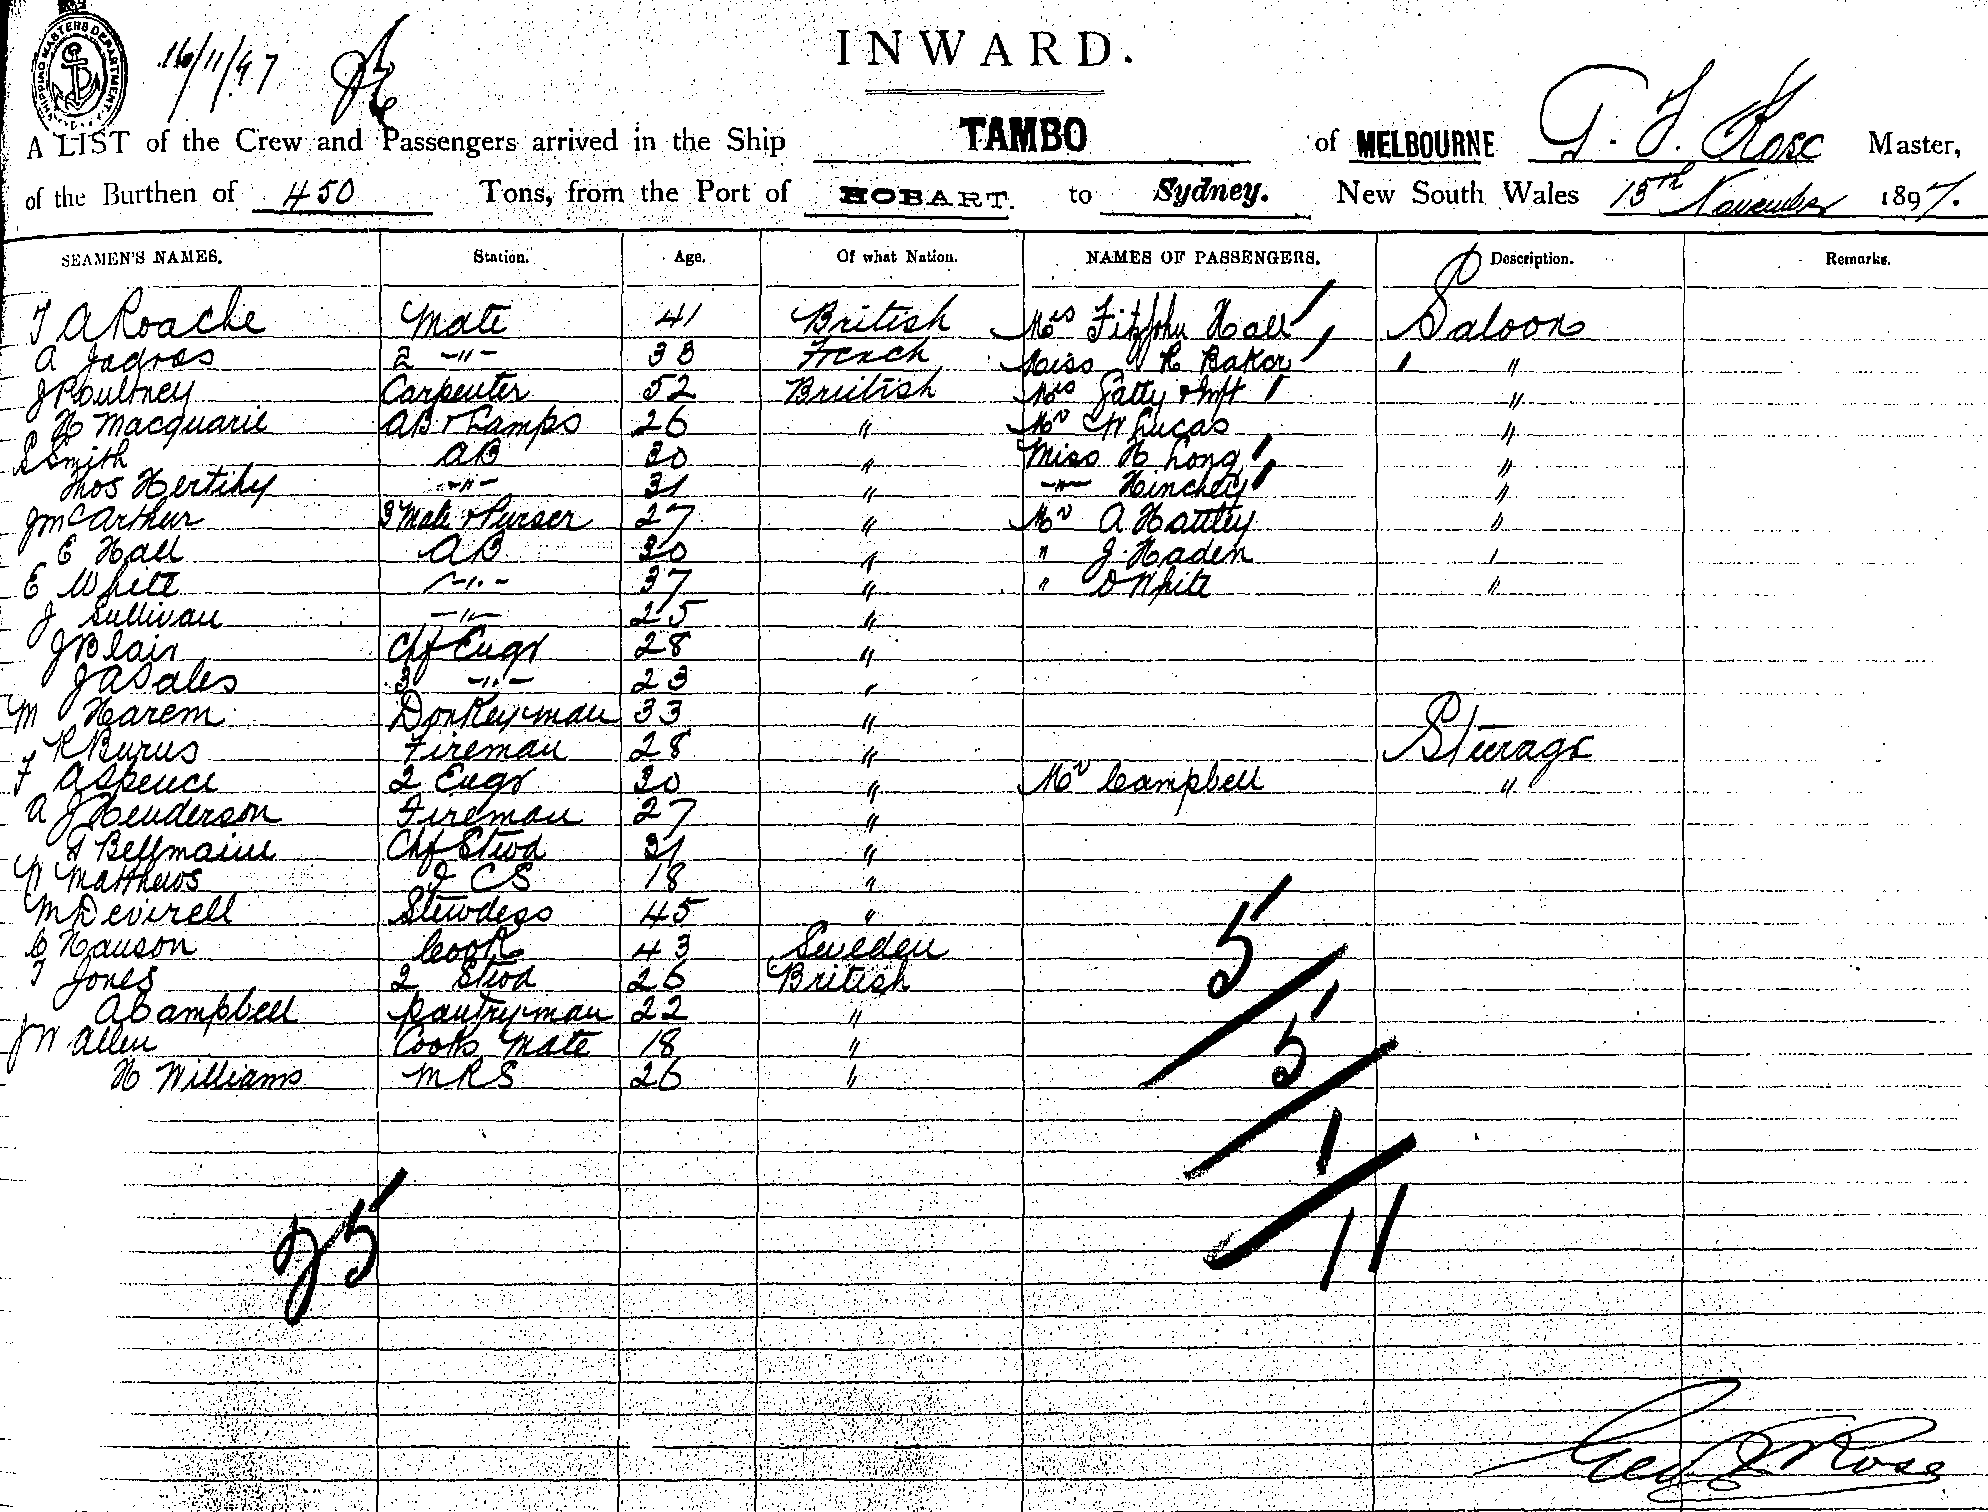 SHIPPING MASTERS DEPARTMENT
16/11/97
INWARD.
A LIST of the Crew and Passengers arrived in the Ship TAMBO of MELBOURNE G. F. Rose Master,
of the Burthen of 450 Tons, from the Port of HOBART. to Sydney. New South Wales 15th November 1897.
SEAMEN'S NAMES. Station. Age. Of what Nation. NAMES OF PASSENGERS. Description. Remarks.
T A Roache Mate 41 British Mrs Fitzjohn Hall Saloon
A 2 -"- 38 French Miss R Baker "
J Poultney Carpenter 52 British Mrs Patty & Inft "
H Macquarie AB & Lamps 26 " Mr Lucas "
S Smith AB 30 " Miss H Long "
Thos Hertihy -"- 31 " -"- Hinchey "
J McArthur 3 Mate & Purser 27 " Mr A Hattley "
E Hall AB 30 " " J. Haden "
E White -"- 37 " " O White "
J Sullivan -"- 25 "
J Blair Chf Engr 28 "
J A Sales 3 -"- 23 "
M Harem Donkeyman 33 "
R Burns Fireman 28 " Steerage
F A Spence 2 Engr 30 " Mr Campbell "
A J Henderson Fireman 27 "
T Bellmaine Chf Stwd 31 "
W Matthews 2 CS 18 "
M Deverell Stewdess 45 "
C Hanson Cook 43 Sweden
T Jones 2 Stwd 26 British
A Campbell Pantryman 22 "
J W Allen Cooks Mate 18 "
H Williams MRS 26 "
5
5
1
11
25
Geo F Rose